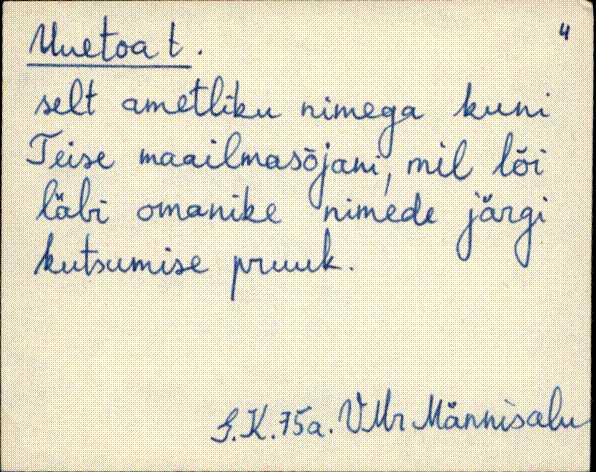 Uuetoa t.
4
selt ametliku nimega kuni
Teise maailmasõjani, mil lõi
läbi omanike nimede järgi
kutsumise pruuk.
S.K. 75a. VMr Männisalu